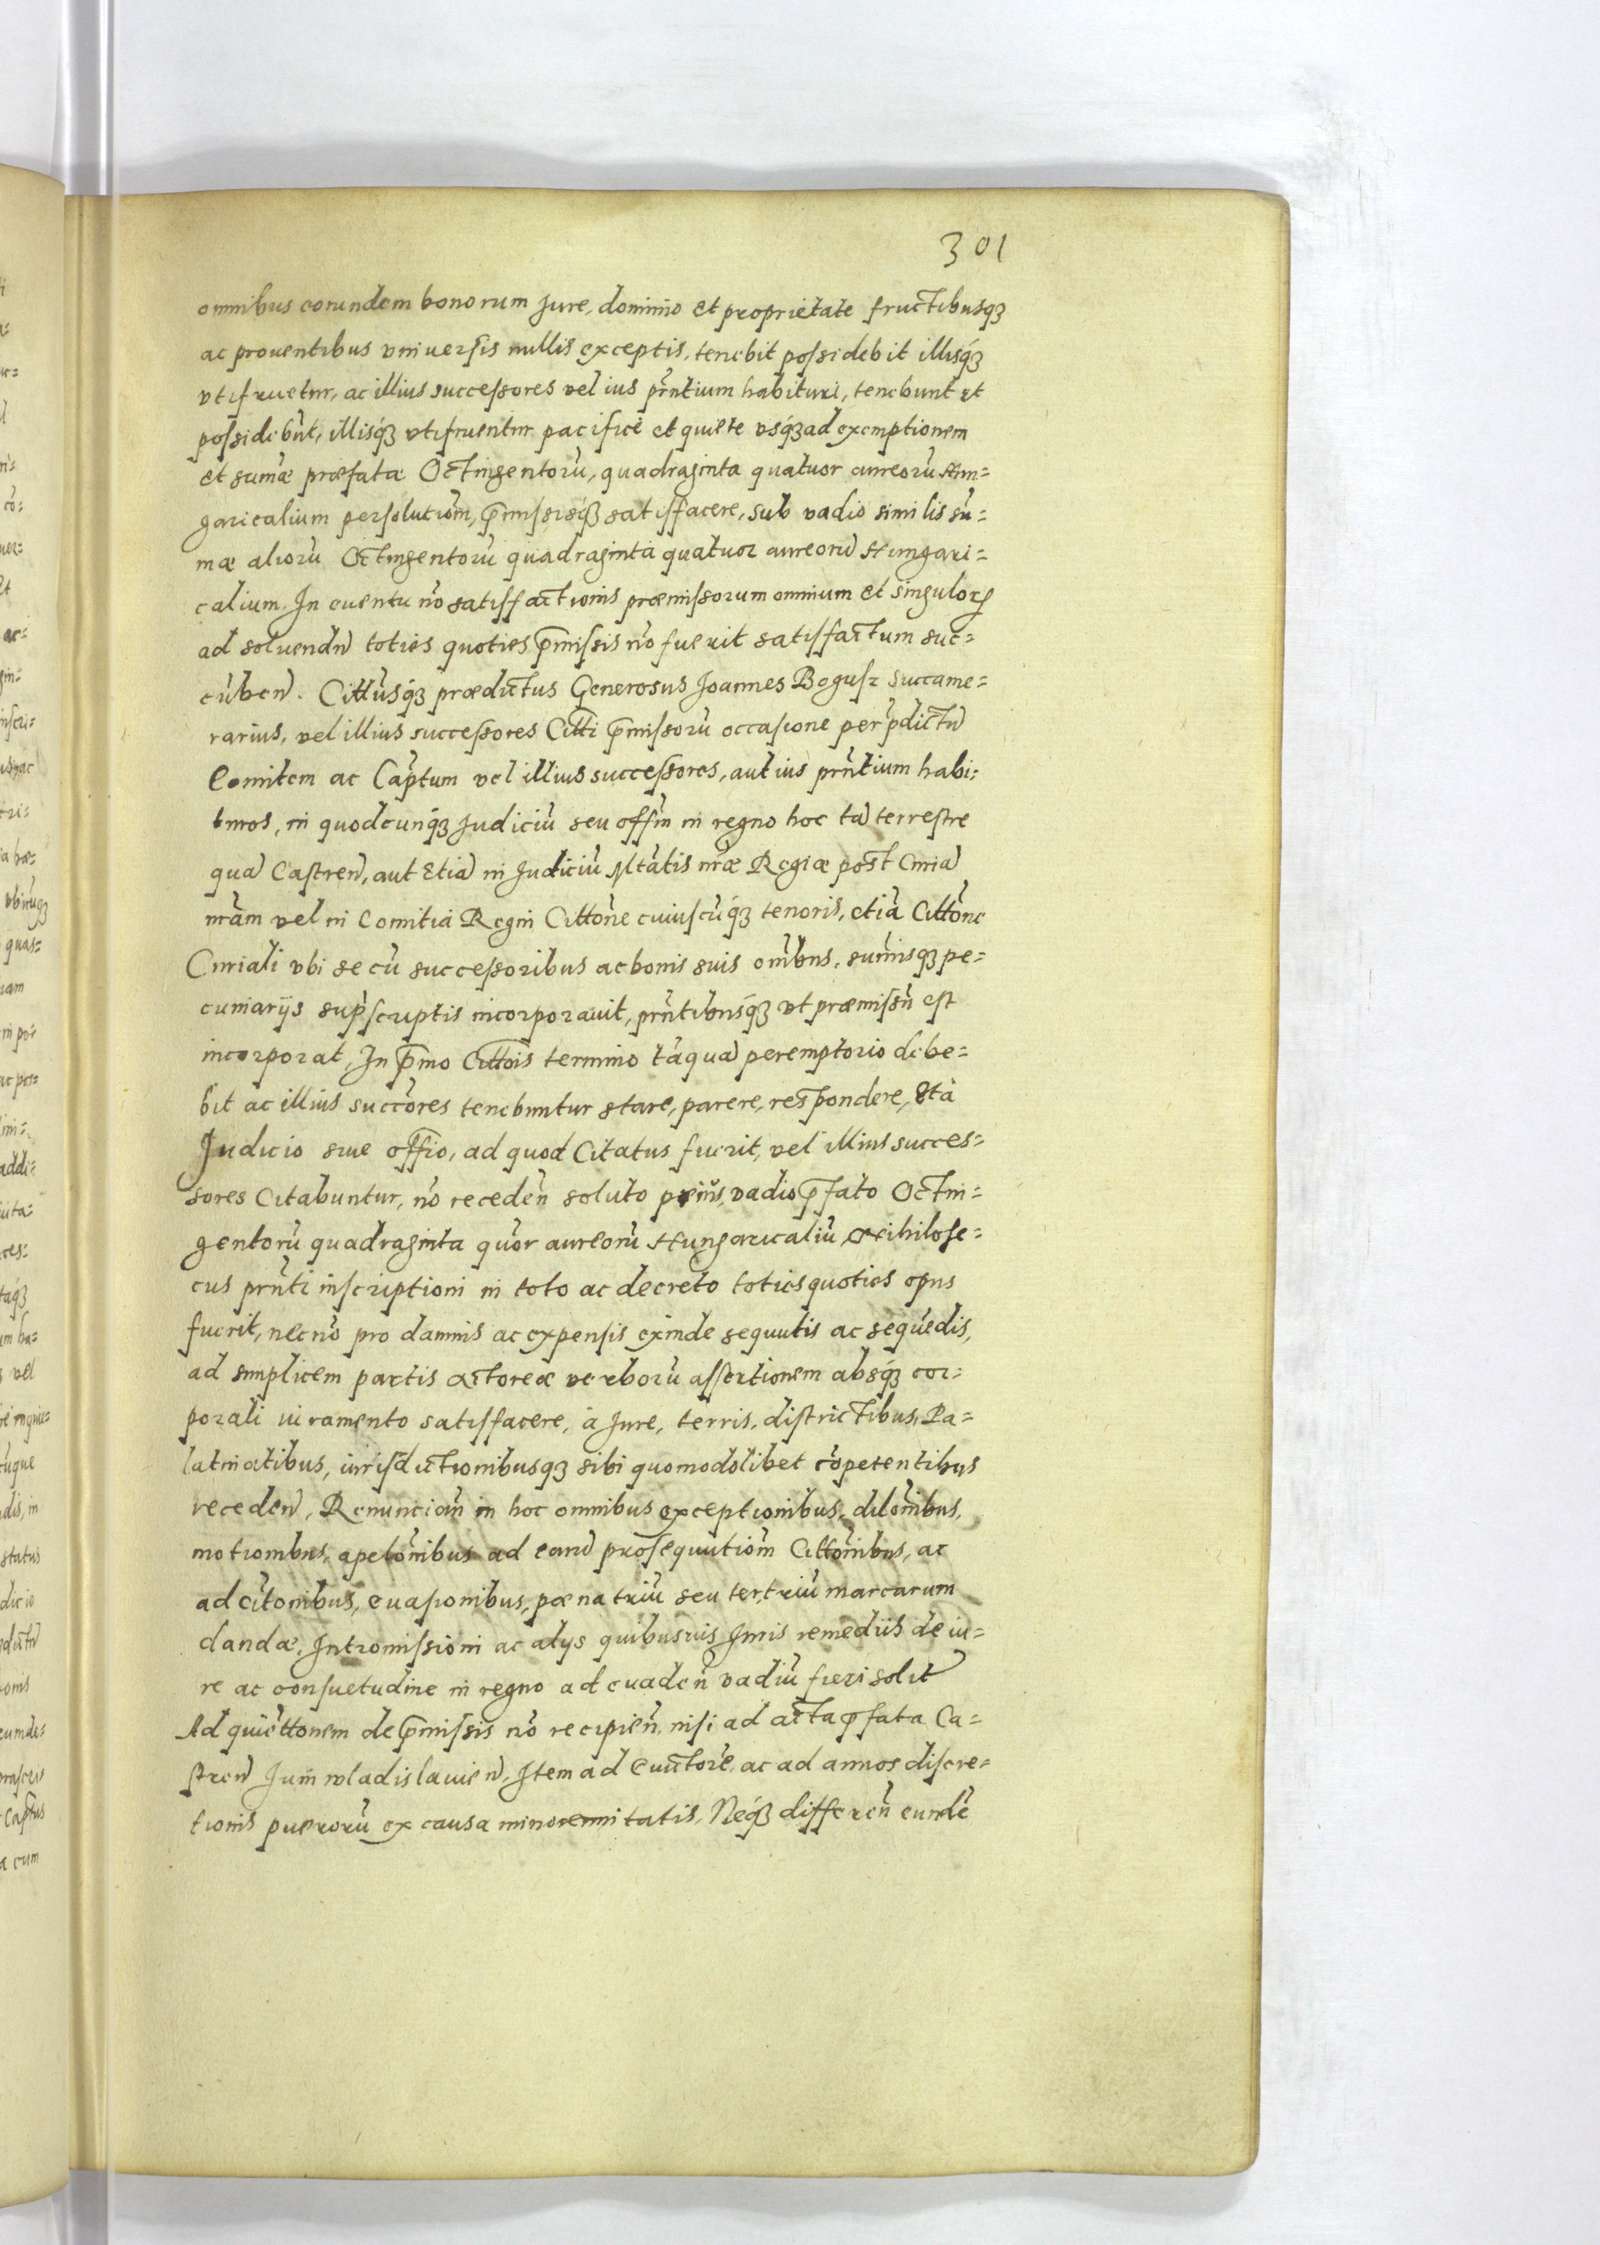 301
omnibus eorundem bonorum Jure, dominio et proprietate fructibusq3
ac prouentibus vniuersis nullis exceptis, tenebit possidebit illisq3
vtifruetur, ac illius successores vel ius prñtium habituri, tenebunt et
possidebũt, illisq3 vtifruentur pacifice et quiete vsq3 ad exemptionem
et sumæ præfatæ Octingentorũ, quadraginta quatuor aureorũ Hun=
garicalium persolutiom̃, p̃missisq3 satisfacere, sub vadio similis sũ=
mæ aliorũ Octingentorũ quadraginta quatuor aureorũ Hungari=
calium. In euentu nõ satisfactionis præmissorum omnium et singulorꝝ
ad soluendũ toties quoties p̃missis nõ fuerit satisfactum suc=
cũben̄. Cittusq3 prædictus Generosus Joannes Bogusz Succame=
rarius, vel illius successores Citti p̃missorũ occasione per p̃dictũ
Comitem ac Cap̃tum vel illius successores, aut ius prñtium habi=
turos, in quodcunq3 Judiciũ seu offm̃ in regno hoc tã terrestre
quã Castren̄, aut Etiã in Judiciũ Mtãtis nr̃æ Regiæ post Curiã
nrãm vel in Comitia Regni Cittõne cuiuscũq3 tenoris, etiã Cittõne
Curiali vbi se cũ successoribus ac bonis suis om̃bus, summisq3 pe=
cuniarijs sup̃scriptis incorporauit, prñtibusq3 vt præmissũ est
incorporat, In p̃mo Cittõis termino tãquã peremptorio debe=
bit ac illius succõres tenebuntur stare, parere, respondere, Et à
Judicio siue offio, ad quod Citatus fuerit, vel illius succes=
sores Citabuntur, nõ receden̄ soluto prius, vadio p̃fato Octin=
gentorũ quadraginta quõr aureorũ Hungaricaliũ, et nihilose=
cus prñti inscriptioni in toto ac decreto toties quoties opus
fuerit, necnõ pro damnis ac expensis exinde sequutis ac sequẽdis,
ad simplicem partis actoreæ verborũ assertionem absq3 cor=
porali iuramento satisfacere, à Jure, terris, districtibus, Pa=
latinatibus, iurisdictionibusq3 sibi quomodolibet cõpetentibus
receden̄, Renunciom̃ in hoc omnibus exceptionibus, dilom̃ibus,
motionibus, apelõnibus ad eand̃ prosequutiom̃ Cittõnibus, ac
ad cĩtonibus, euasionibus, pœna triũ seu ter, triũ marcarum
dandæ, Intromissioni ac alijs quibusuis Juris remedijs de iu=
re ac consuetudine in regno ad euaden̄ vadiũ fieri solit
Ad quiettonem de p̃missis nõ recipien̄, nisi ad acta p̃fata Ca=
stren̄ Juniwladislauien̄, Item ad Euictorẽ, ac ad annos discre=
tionis puerorũ ex causa minorennitatis, Neq3 differen̄ eundẽ